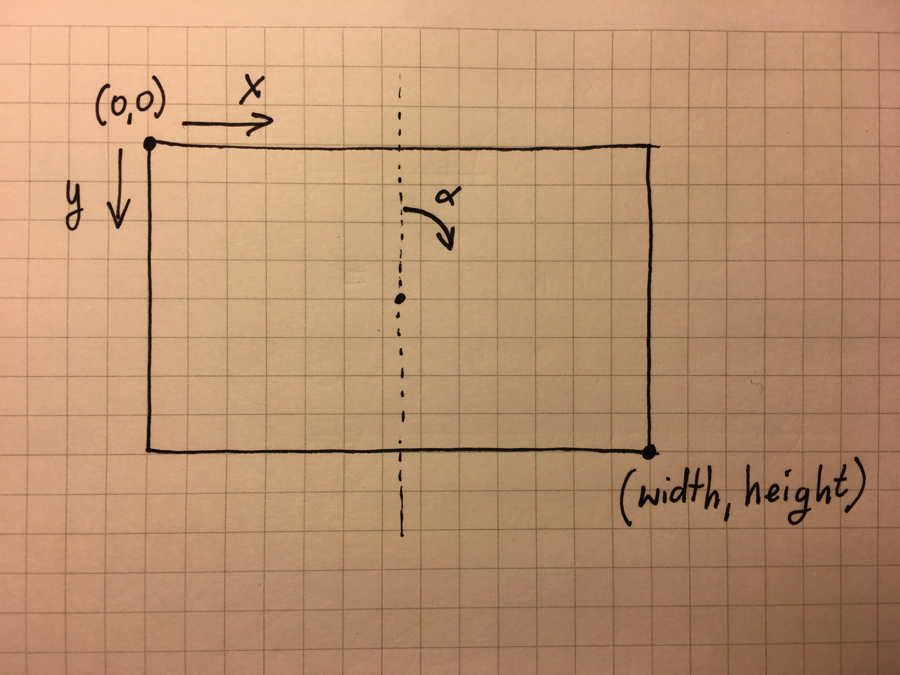 (0,0)
x
y
α
(width, height)